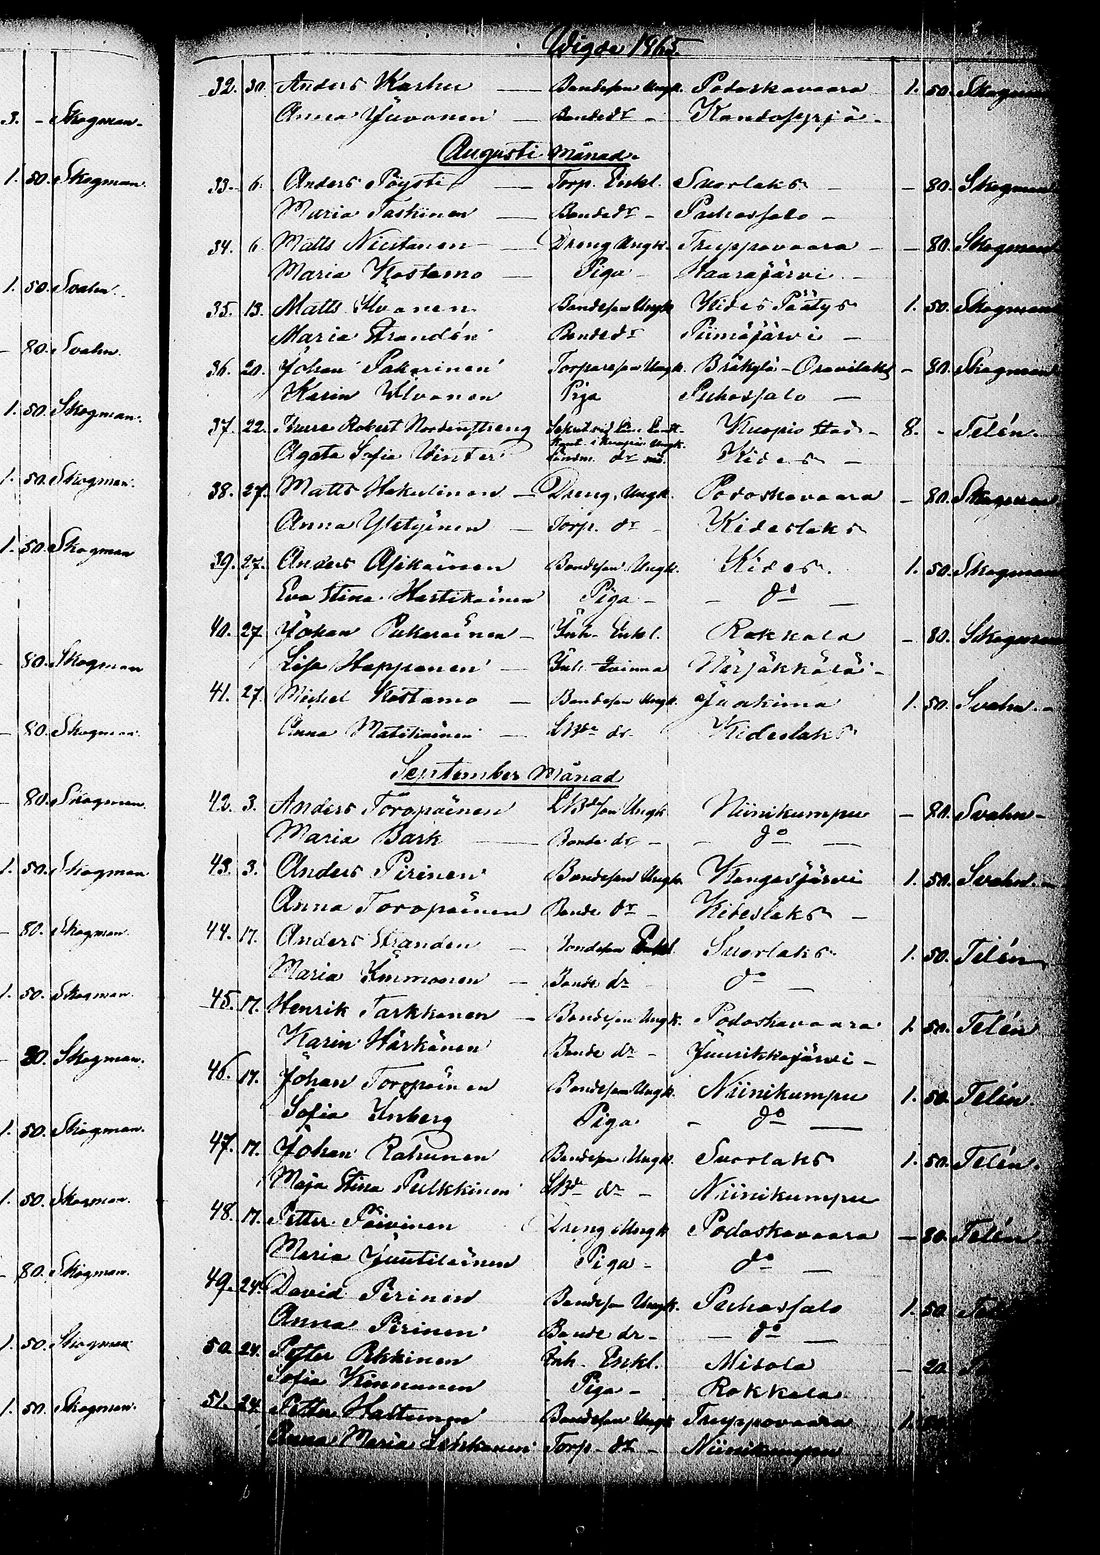 Wigde 1865.
32. 30. Anders Karhu — Bondeson Ungk. Podoskavaara 1. 50. Skogman
3. - Skogman.
Anna Juvonen — Bondedr - Kontiopyrjö -
Augusti Månad.
1. 50. Skogman.
33. 6. Anders Pöysti — Torp. Enkl. Suorlaks - 80. Skogman
Maria Taskinen — Bondedr - Puhossalo -
34. 6. Matts Niistanen — Dreng Ungk. Treppovaara - 80. Skogman
Maria Kostamo — Piga - Haarajärvi -
1. 50. Svahn.
35. 13. Matts Ilvonen Bondeson Ungk Kides Päätys 1. 50. Skogman
Maria Strandén Bondedr Piimäjärvi -
- 80. Svahn.
36. 20. Johan Pakarinen Torpareson Ungk. Bräkylä - Oravilaks - 80. Skogman
Karin Ilvonen Piga Puhossalo -
1. 50. Skogman.
37. 22. Robert Nordenstreng Kuopio stad - 8. - Telén
Agata Sofia Winter Kides -
1. 50. Skogman.
38. 27. Matts Hakulinen — Dreng, Ungk. Podoskavaara - 80. Skogman
Anna Yletyinen — Torp. dr - Kideslaks
1. 50. Skogman
39. 27. Anders Asikainen Bondeson Ungk. Kides. 1. 50. Skogman
Eva Stina Hartikainen Piga - - do —
40. 27. Johan Pukarainen - Inh. Enkl. Rokkala - 80. Skogman
- 80. Skogman
Lisa Happonen — Inh. qvinna Närsäkkälä -
41. 27. Mickel Kostamo — Bondeson Ungk. Juakima 1. 50. Svahn -
- 80. Skogman.
Anna Matikainen — LBde dr. Kideslaks
September Månad
- 80. Skogman.
42. 3. Anders Toropainen LBdeson Ungk. Niinikumpu - 80. Svahn -
Maria Bark — Bonde dr - - do -
1. 50. Skogman
43. 3. Anders Pirinen Bondeson Ungk Kangasjärvi 1. 50. Svahn. -
Anna Toropainen Bonde dr - Kideslaks -
- 80. Skogman.
44. 17. Anders Stranden - Bondeson Enkl. Suorlaks 1. 50. Telén
Maria Immonen - Bonde dr do
1. 50. Skogman.
45. 17. Henrik Tarkkonen - Bondeson Ungk. Podoskavaara 1. 50. Telén
Karin Härkönen Bonde dr - Juurikkajärvi -
- 80. Skogman.
46. 17. Johan Toropainen Bondeson Ungk. Niinikumpu 1. 50. Telén.
Sofia Enberg Piga - do —
1. 50. Skogman.
47. 17. Johan Rahunen Bondeson Ungk. Suorlaks 1. 50. Telén.
Maja Stina Pulkkinen LBde dr - Niinikumpu
1. 50. Skogman.
48. 17. Petter Päivinen Dreng Ungk Podoskavaara - 80. Telén.
Maria Juutilainen Piga - do —
- 80. Skogman.
49. 24. David Pirinen Bondeson Ungk. Puhossalo 1. 50.
Anna Pirinen Bonde dr - - do —
1. 50. Skogman
50. 24. Petter Pekkinen Inh. Enkl. Misola
Sofia Kinnunen Piga - Rokkala
1. 50. Skogman.
51. 24. Petter Bondeson Ungk Treppovaara 1.
Anna Maria Torp - dr - Niinikumpu